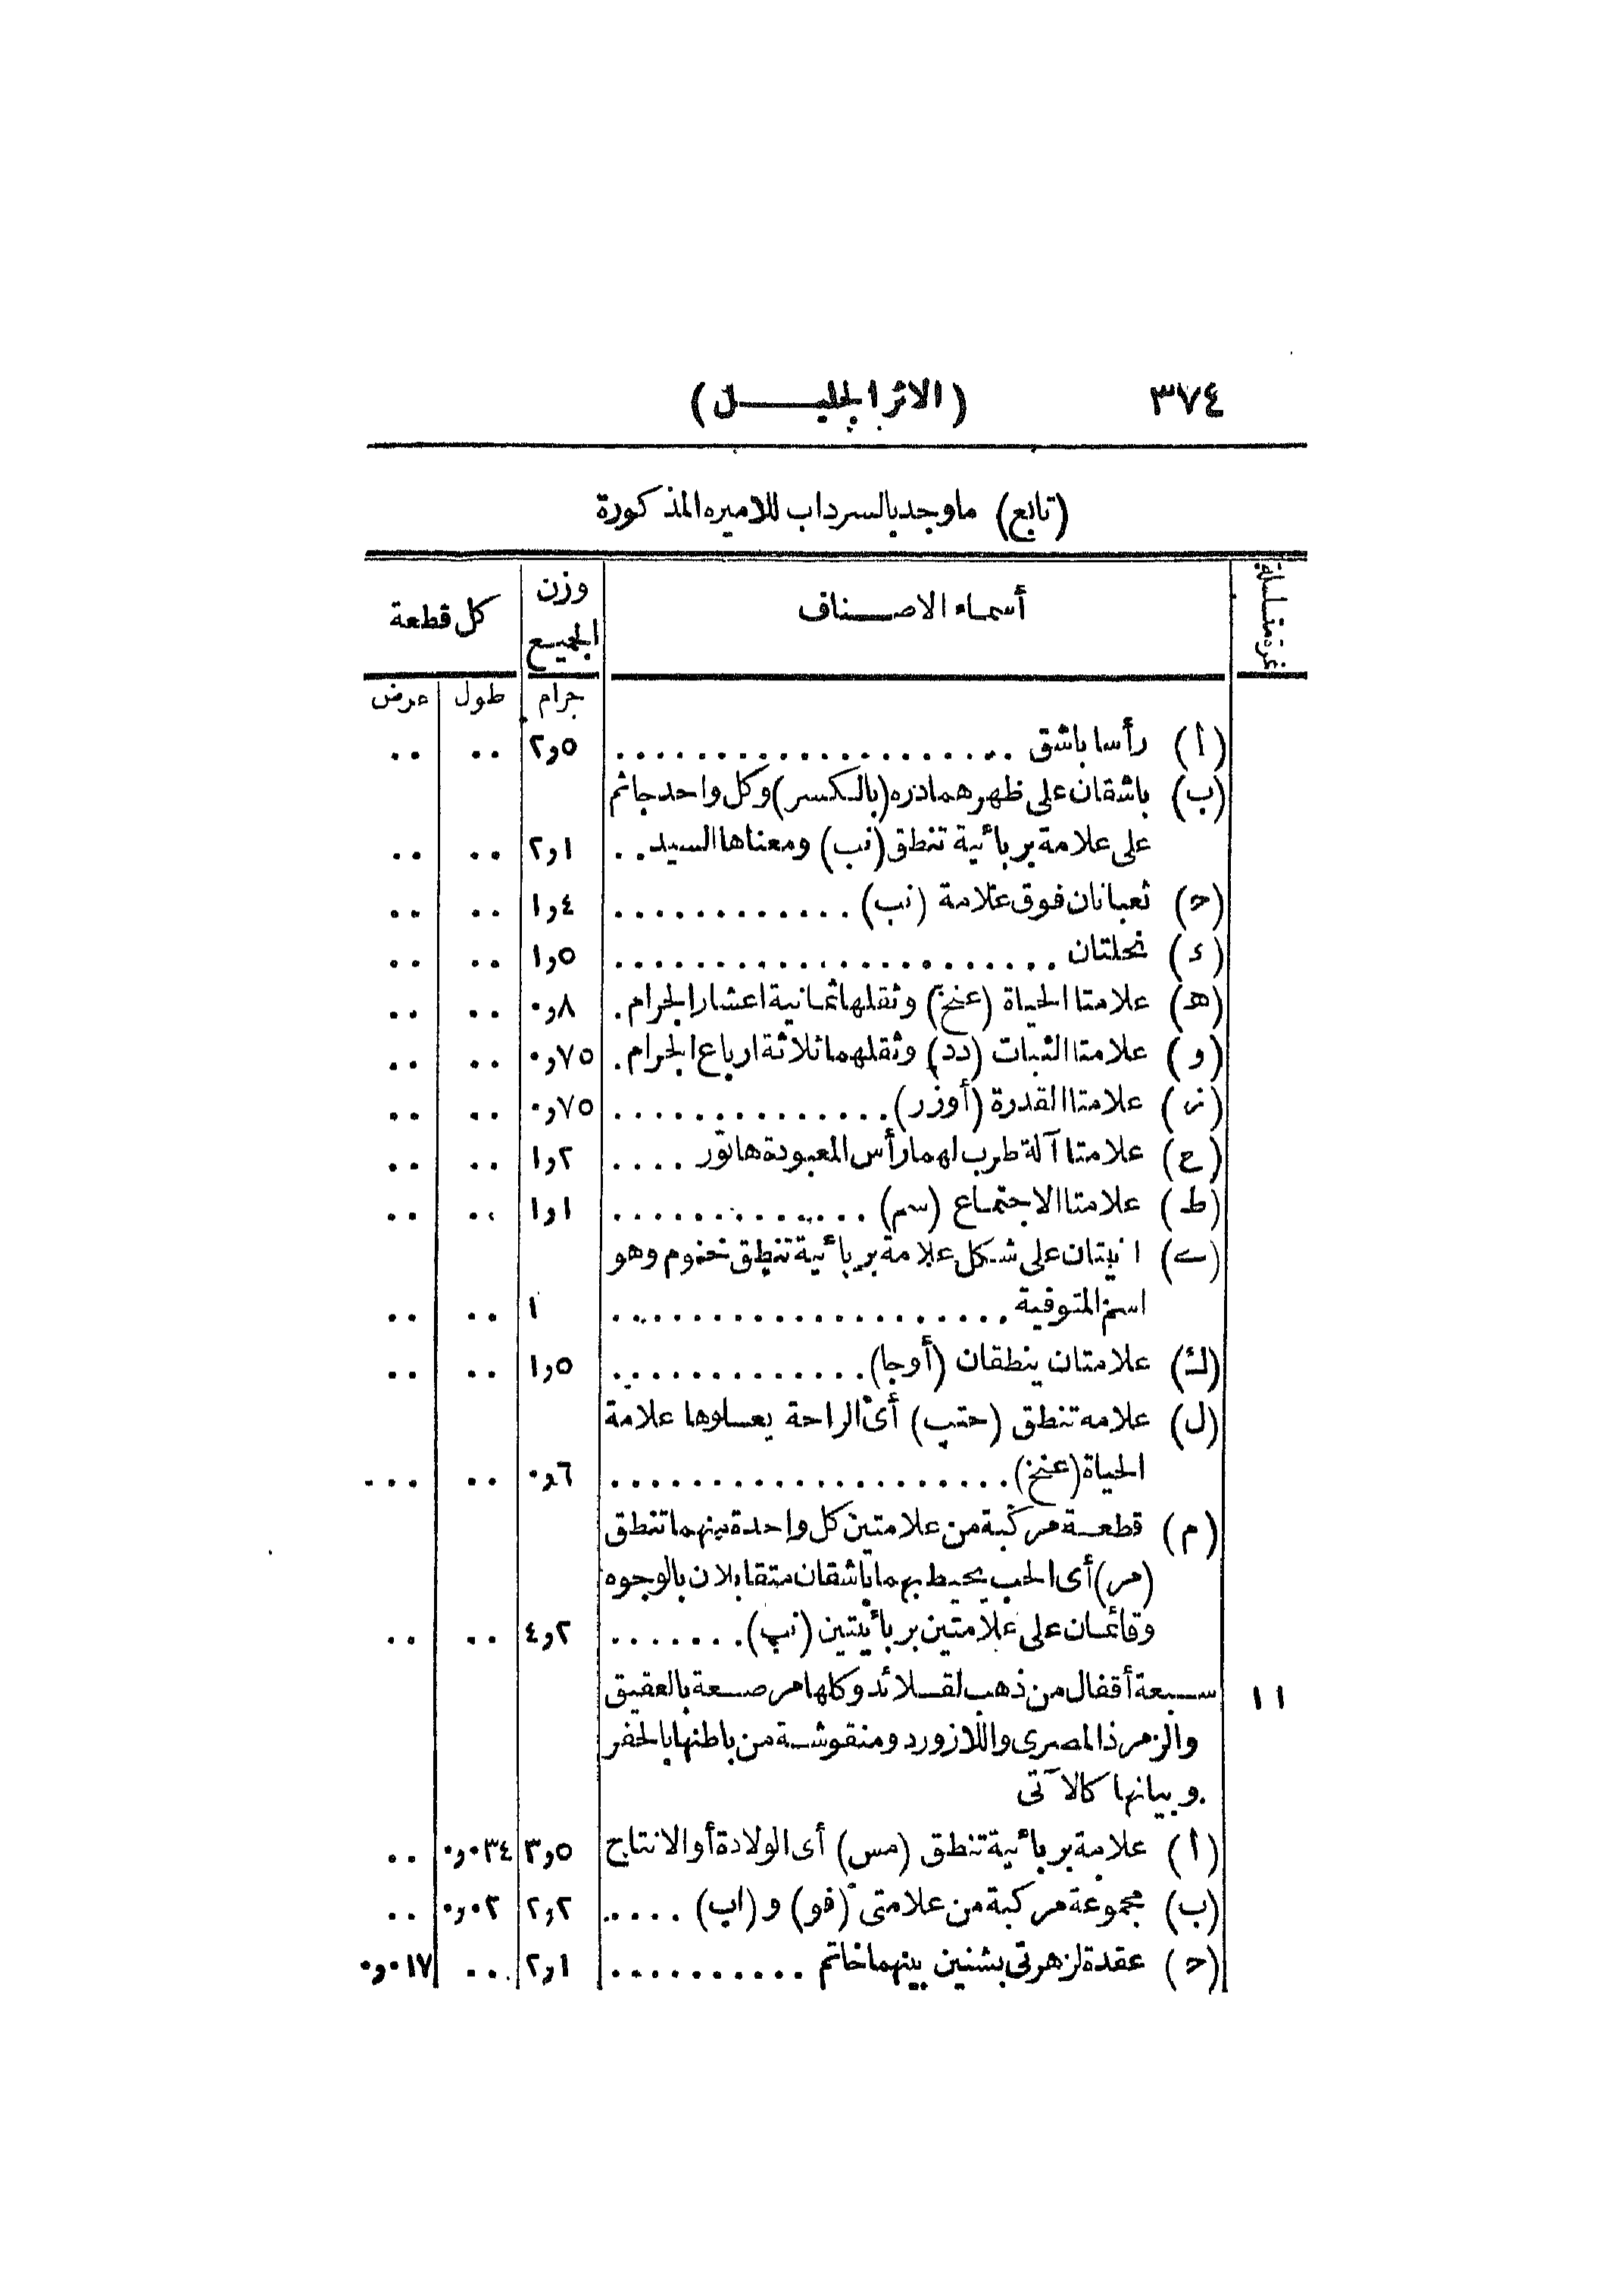 ٣٧٤ (الاثر الجليل)
(تابع) ما وجد بالسرداب للاميره المذكورة
نمرة متسلسلة أسماء الاصناف وزن الجميع كل قطعة
جرام طول عرض
(أ) رأسا باشق .................... ٥و٢ .. ..
(ب) باشقان على ظهرهما دره (بالكسر) وكل واحد جاثم
على علامة بربائية تنطق (نب) ومعناها السيد .. ١و٢ .. ..
(ح) ثعبانان فوق علامة (نب) ............ ٤و١ .. ..
(د) نحلتان ...................... ٥و١ .. ..
(هـ) علامتا الحياة (عنخ) وثقلها ثمانية اعشار الجرام . ٨و٠ .. ..
(و) علامتا الثبات (دد) وثقلهما ثلاثة ارباع الجرام . ٧٥و٠ .. ..
(ز) علامتا القدرة (أوزر) .............. ٧٥و٠ .. ..
(ح) علامتا آلة طرب لهما رأس المعبودة هاتور .... ٢و١ .. ..
(ط) علامتا الاجتماع (سم) ............. ١و١ .. ..
(ى) انيتان على شكل علامة بربائية تنطق خنوم وهو
اسم المتوفية .................... ١ .. ..
(ك) علامتان ينطقان (أوجا) ............. ٥و١ .. ..
(ل) علامه تنطق (حتب) أى الراحة يعلوها علامة
الحياة (عنخ) .................... ٦و٠ .. ...
(م) قطعة مركبة من علامتين كل واحدة منهما تنطق
(مر) أى الحب يحيط بهما باشقان متقابلان بالوجوه
وقائمان على علامتين بربائيتين (نب) ....... ٢و٤ .. ..
١١ سبعة أقفال من ذهب لقلائد وكلها مرصعة بالعقيق
والزمرذ المصرى واللازورد ومنقوشة من باطنها بالحفر
وبيانها كالآتى
(أ) علامة بربائية تنطق (مس) أى الولادة أو الانتاج ٥و٣ ٠٣٤و٠ ..
(ب) مجموعة مركبة من علامتى (فو) و (اب) ..... ٢و٢ ٠٢و٠ ..
(ح) عقدة لزهرتى بشنين بينهما خاتم .......... ١و٢ ... ٠١٧و٠